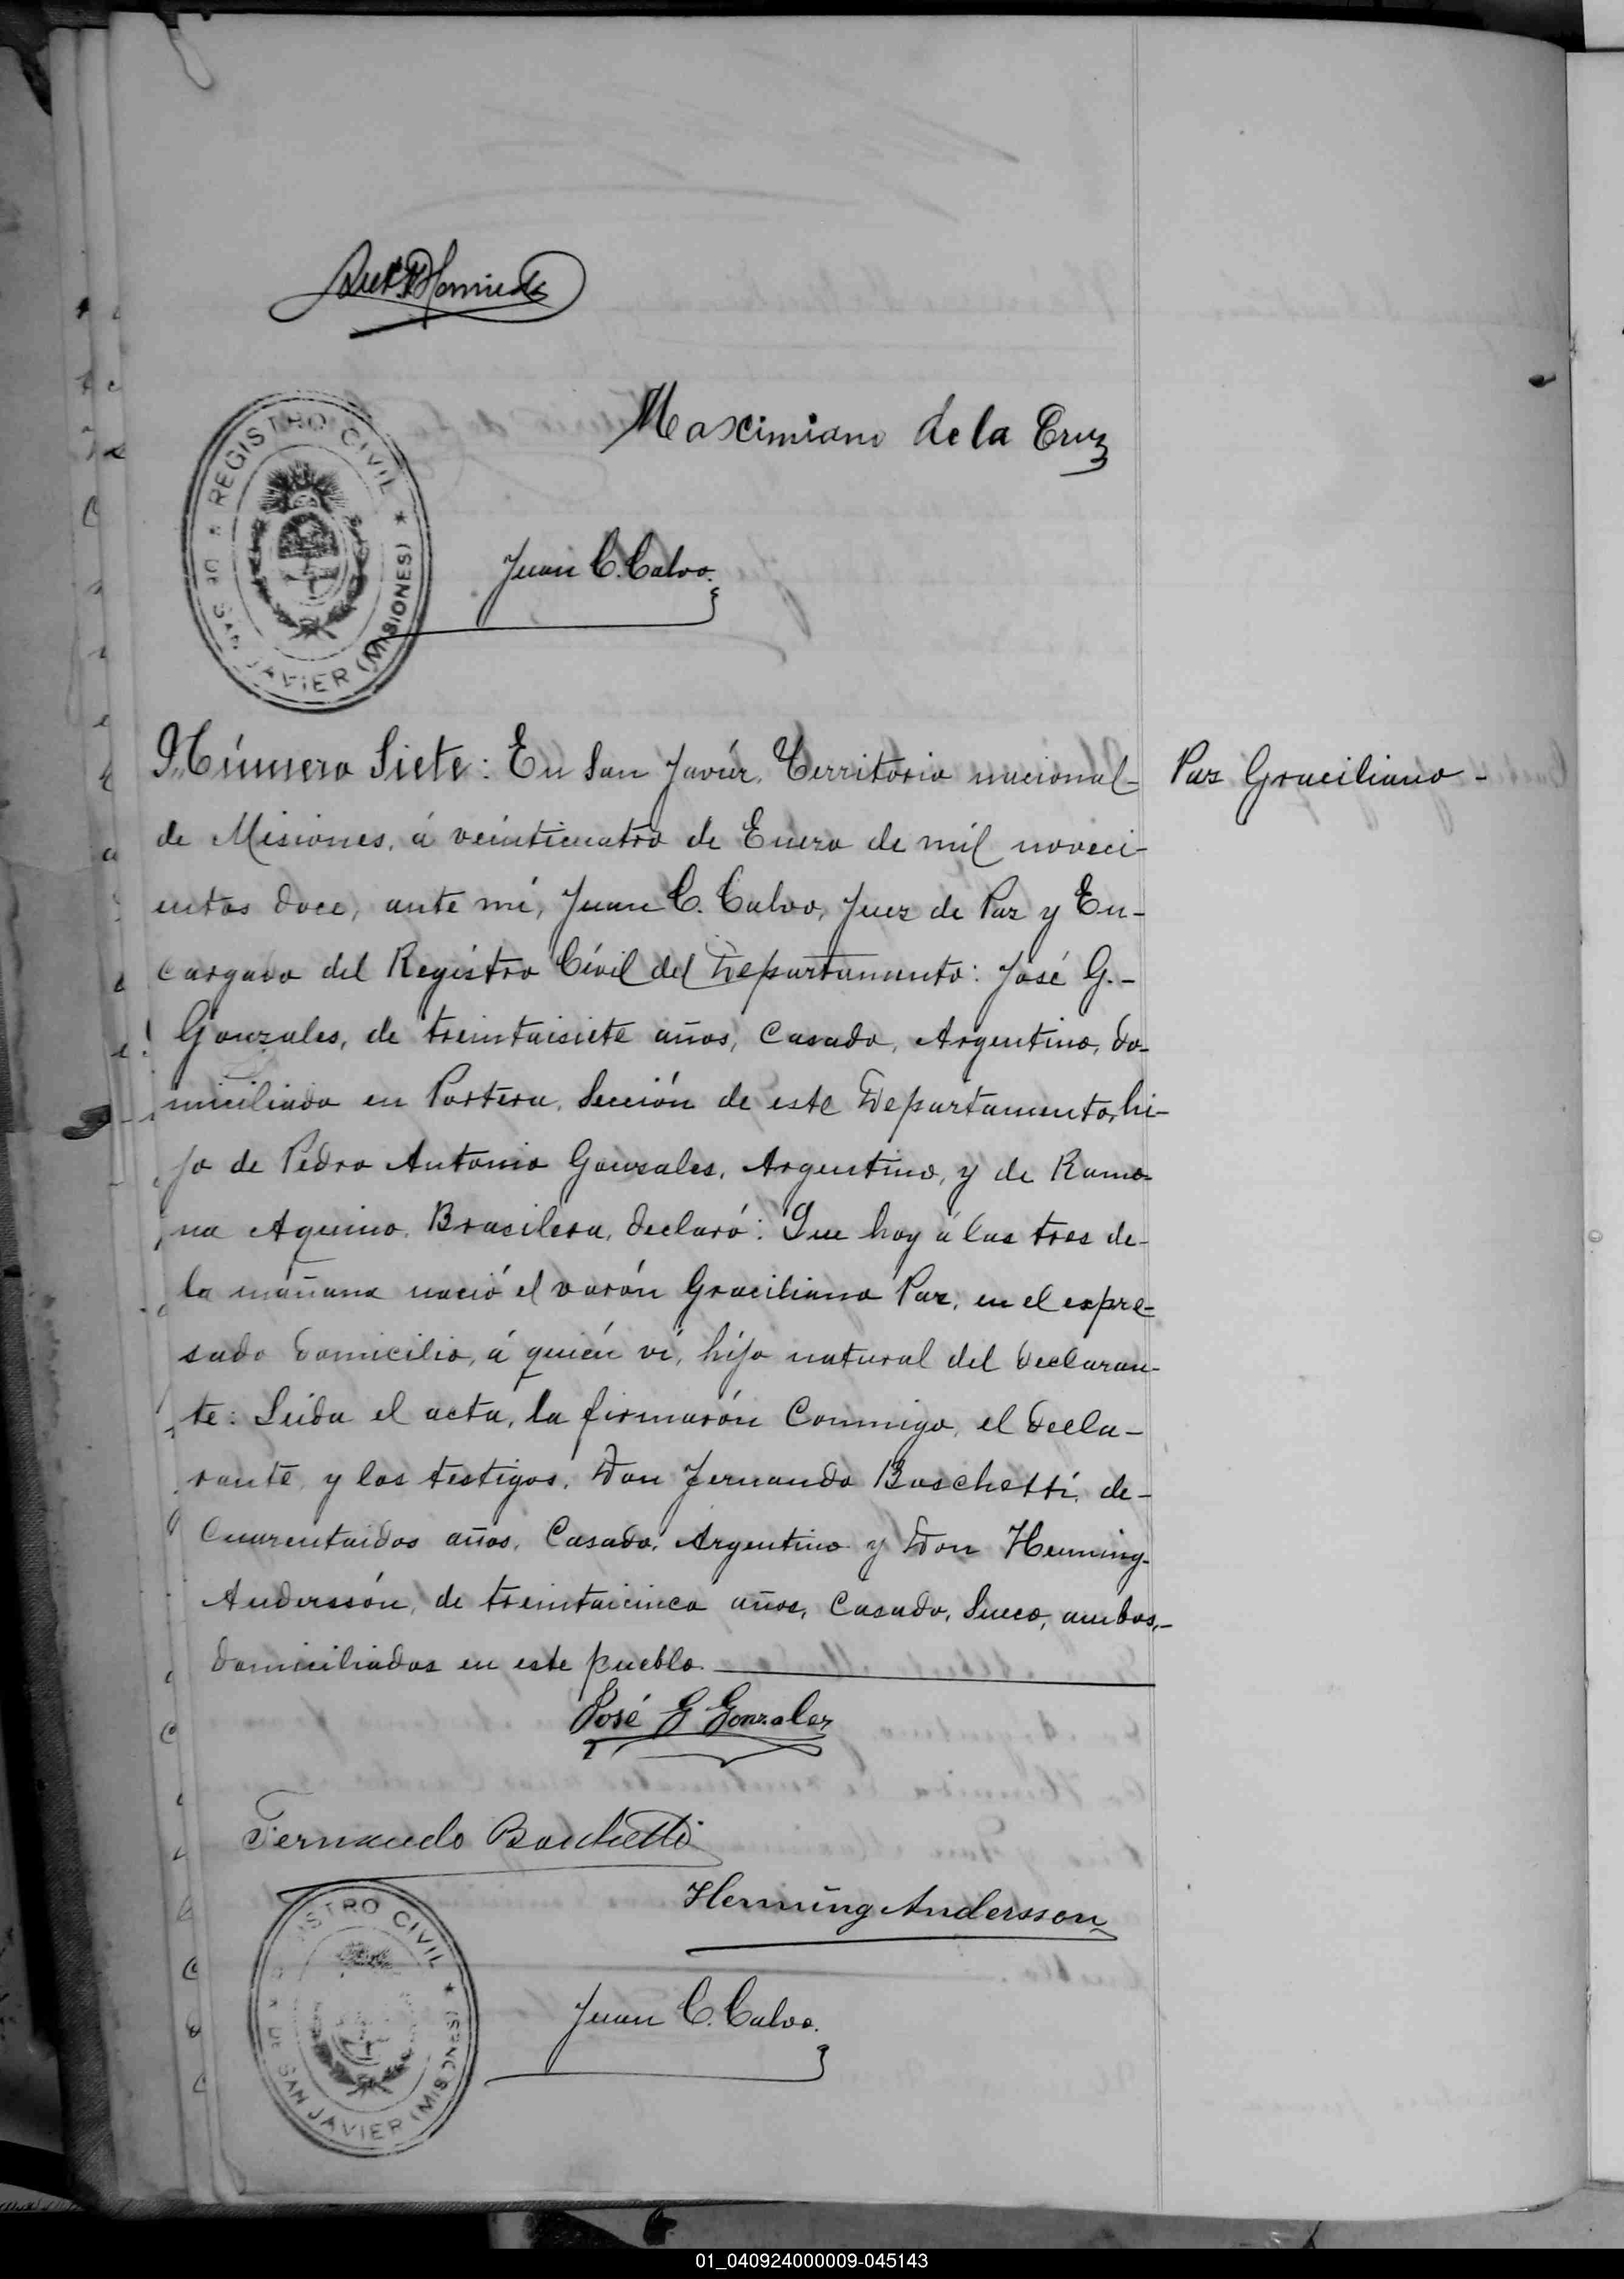 Maximiano de la Cruz
REGISTRO CIVIL
★ DE SAN JAVIER (MISIONES) ★
Juan C. Calvo.
Número Siete: En San Javiér, Territorio nacional-
de Misiones, á veinticuatro de Enero de mil noveci-
entos doce, ante mí, Juan C. Calvo, Juez de Paz y En-
cargado del Registro Cívil del Departamento: José G.-
Gonzales, de treintaisiete años, Casado, Argentino, do-
miciliado en Portera, Sección de este Departamento, hi-
jo de Pedro Antonio Gonzales, Argentino, y de Ramo-
na Aquino, Brasilera, declaró: Que hoy á las tres de-
la mañana nació el varón Graciliano Paz, en el expre-
sado domicilio, á quién ví, hijo natural del declaran-
te: Leida el acta, la firmarón Conmigo, el decla-
rante, y los testigos, Don Fernando Boschetti, de-
Cuarentaidos años, Casado, Argentino y Don Henning-
Anderssón, de treintaicinco años, Casado, Sueco, ambos,-
domiciliados en este pueblo.
Paz Graciliano-
José G Gonzalez
Fernando Boschetti
Henning Andersson
REGISTRO CIVIL
★ DE SAN JAVIER (MISIONES) ★
Juan C. Calvo.
01_040924000009-045143